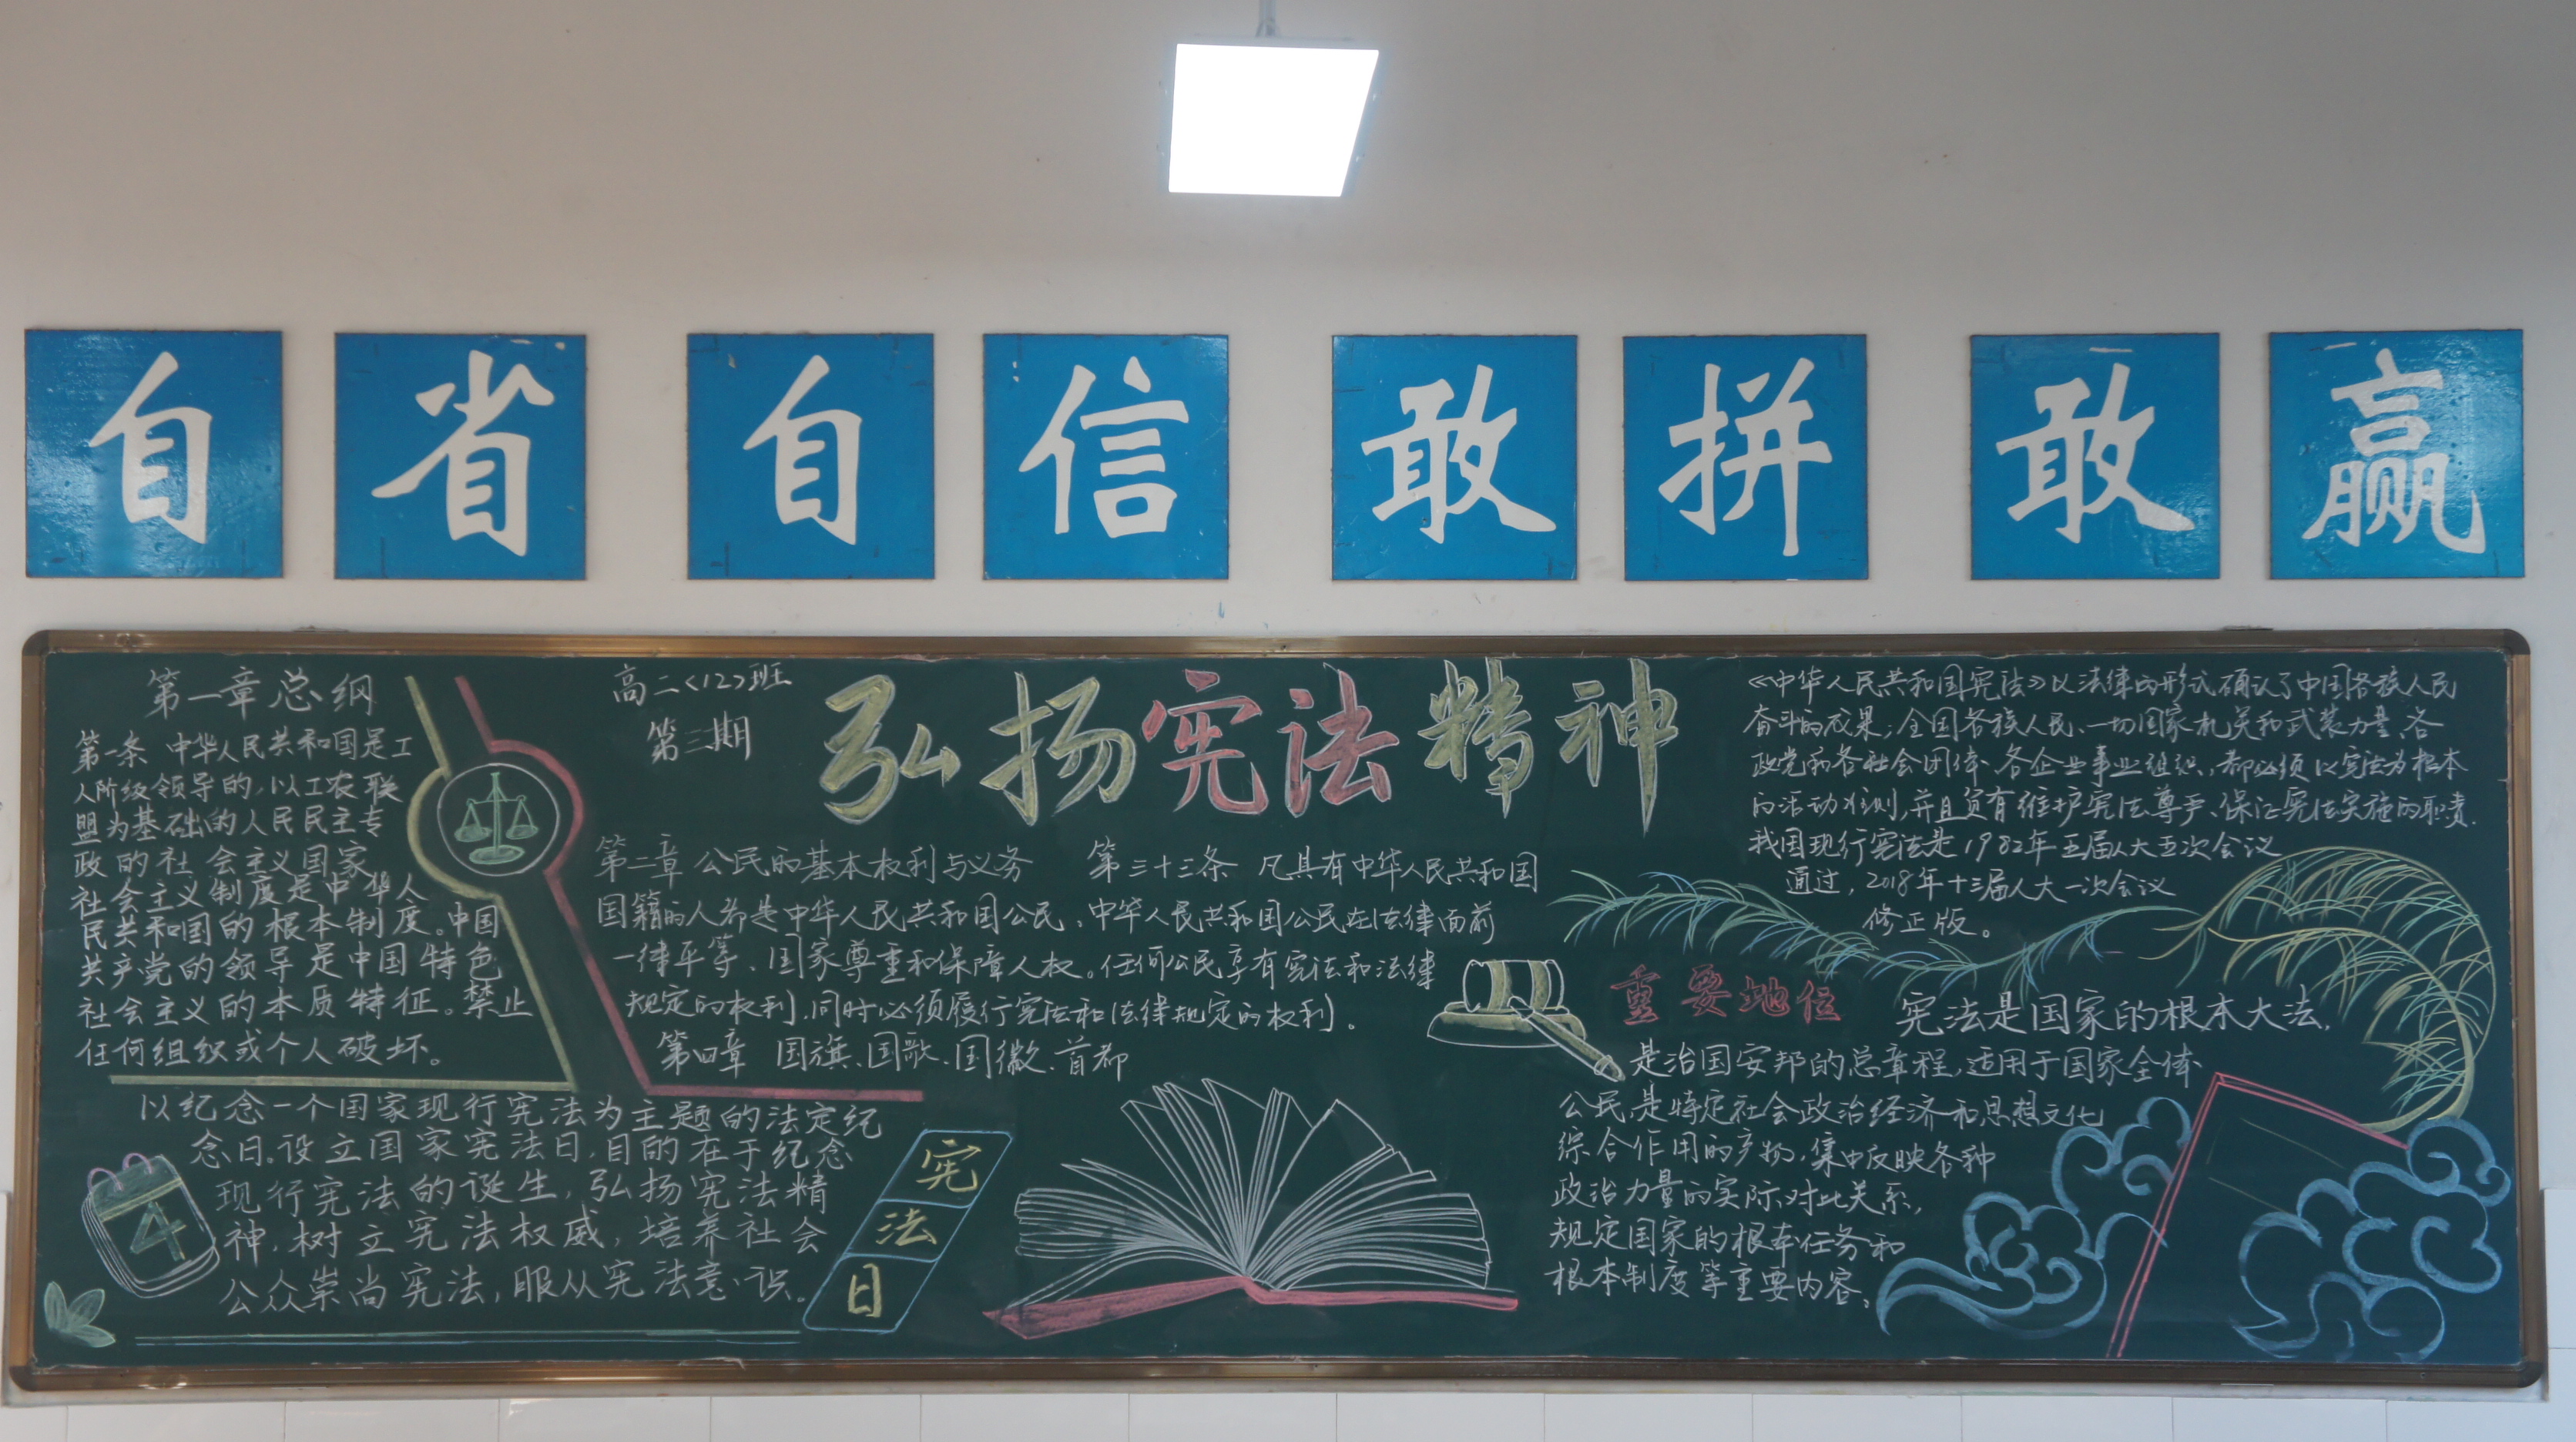 自省自信敢拼敢赢
第一章总纲
第一条 中华人民共和国是工
人阶级领导的,以工农联
盟为基础的人民民主专
政的社会主义国家
社会主义制度是中华人
民共和国的根本制度。中国
共产党的领导是中国特色
社会主义的本质特征。禁止
任何组织或个人破坏。
高二<12>班
第三期
弘扬宪法精神
第二章 公民的基本权利与义务 第三十三条 凡具有中华人民共和国
国籍的人都是中华人民共和国公民,中华人民共和国公民在法律面前
一律平等、国家尊重和保障人权。任何公民享有宪法和法律
规定的权利、同时必须履行宪法和法律规定的权利。
第四章 国旗、国歌、国徽、首都
以纪念一个国家现行宪法为主题的法定纪
念日。设立国家宪法日,目的在于纪念
现行宪法的诞生,弘扬宪法精
神,树立宪法权威,培养社会
公众崇尚宪法,服从宪法意识。
4
宪
法
日
《中华人民共和国宪法》以法律的形式确认了中国各族人民
奋斗的成果;全国各族人民、一切国家机关和武装力量、各
政党和各社会团体、各企业事业组织,都必须以宪法为根本
的活动准则,并且负有维护宪法尊严、保证宪法实施的职责.
我国现行宪法是1982年五届人大五次会议
通过,2018年十三届人大一次会议
修正版。
重要地位
宪法是国家的根本大法,
是治国安邦的总章程,适用于国家全体
公民,是特定社会政治经济和思想文化
综合作用的产物,集中反映各种
政治力量的实际对比关系,
规定国家的根本任务和
根本制度等重要内容。